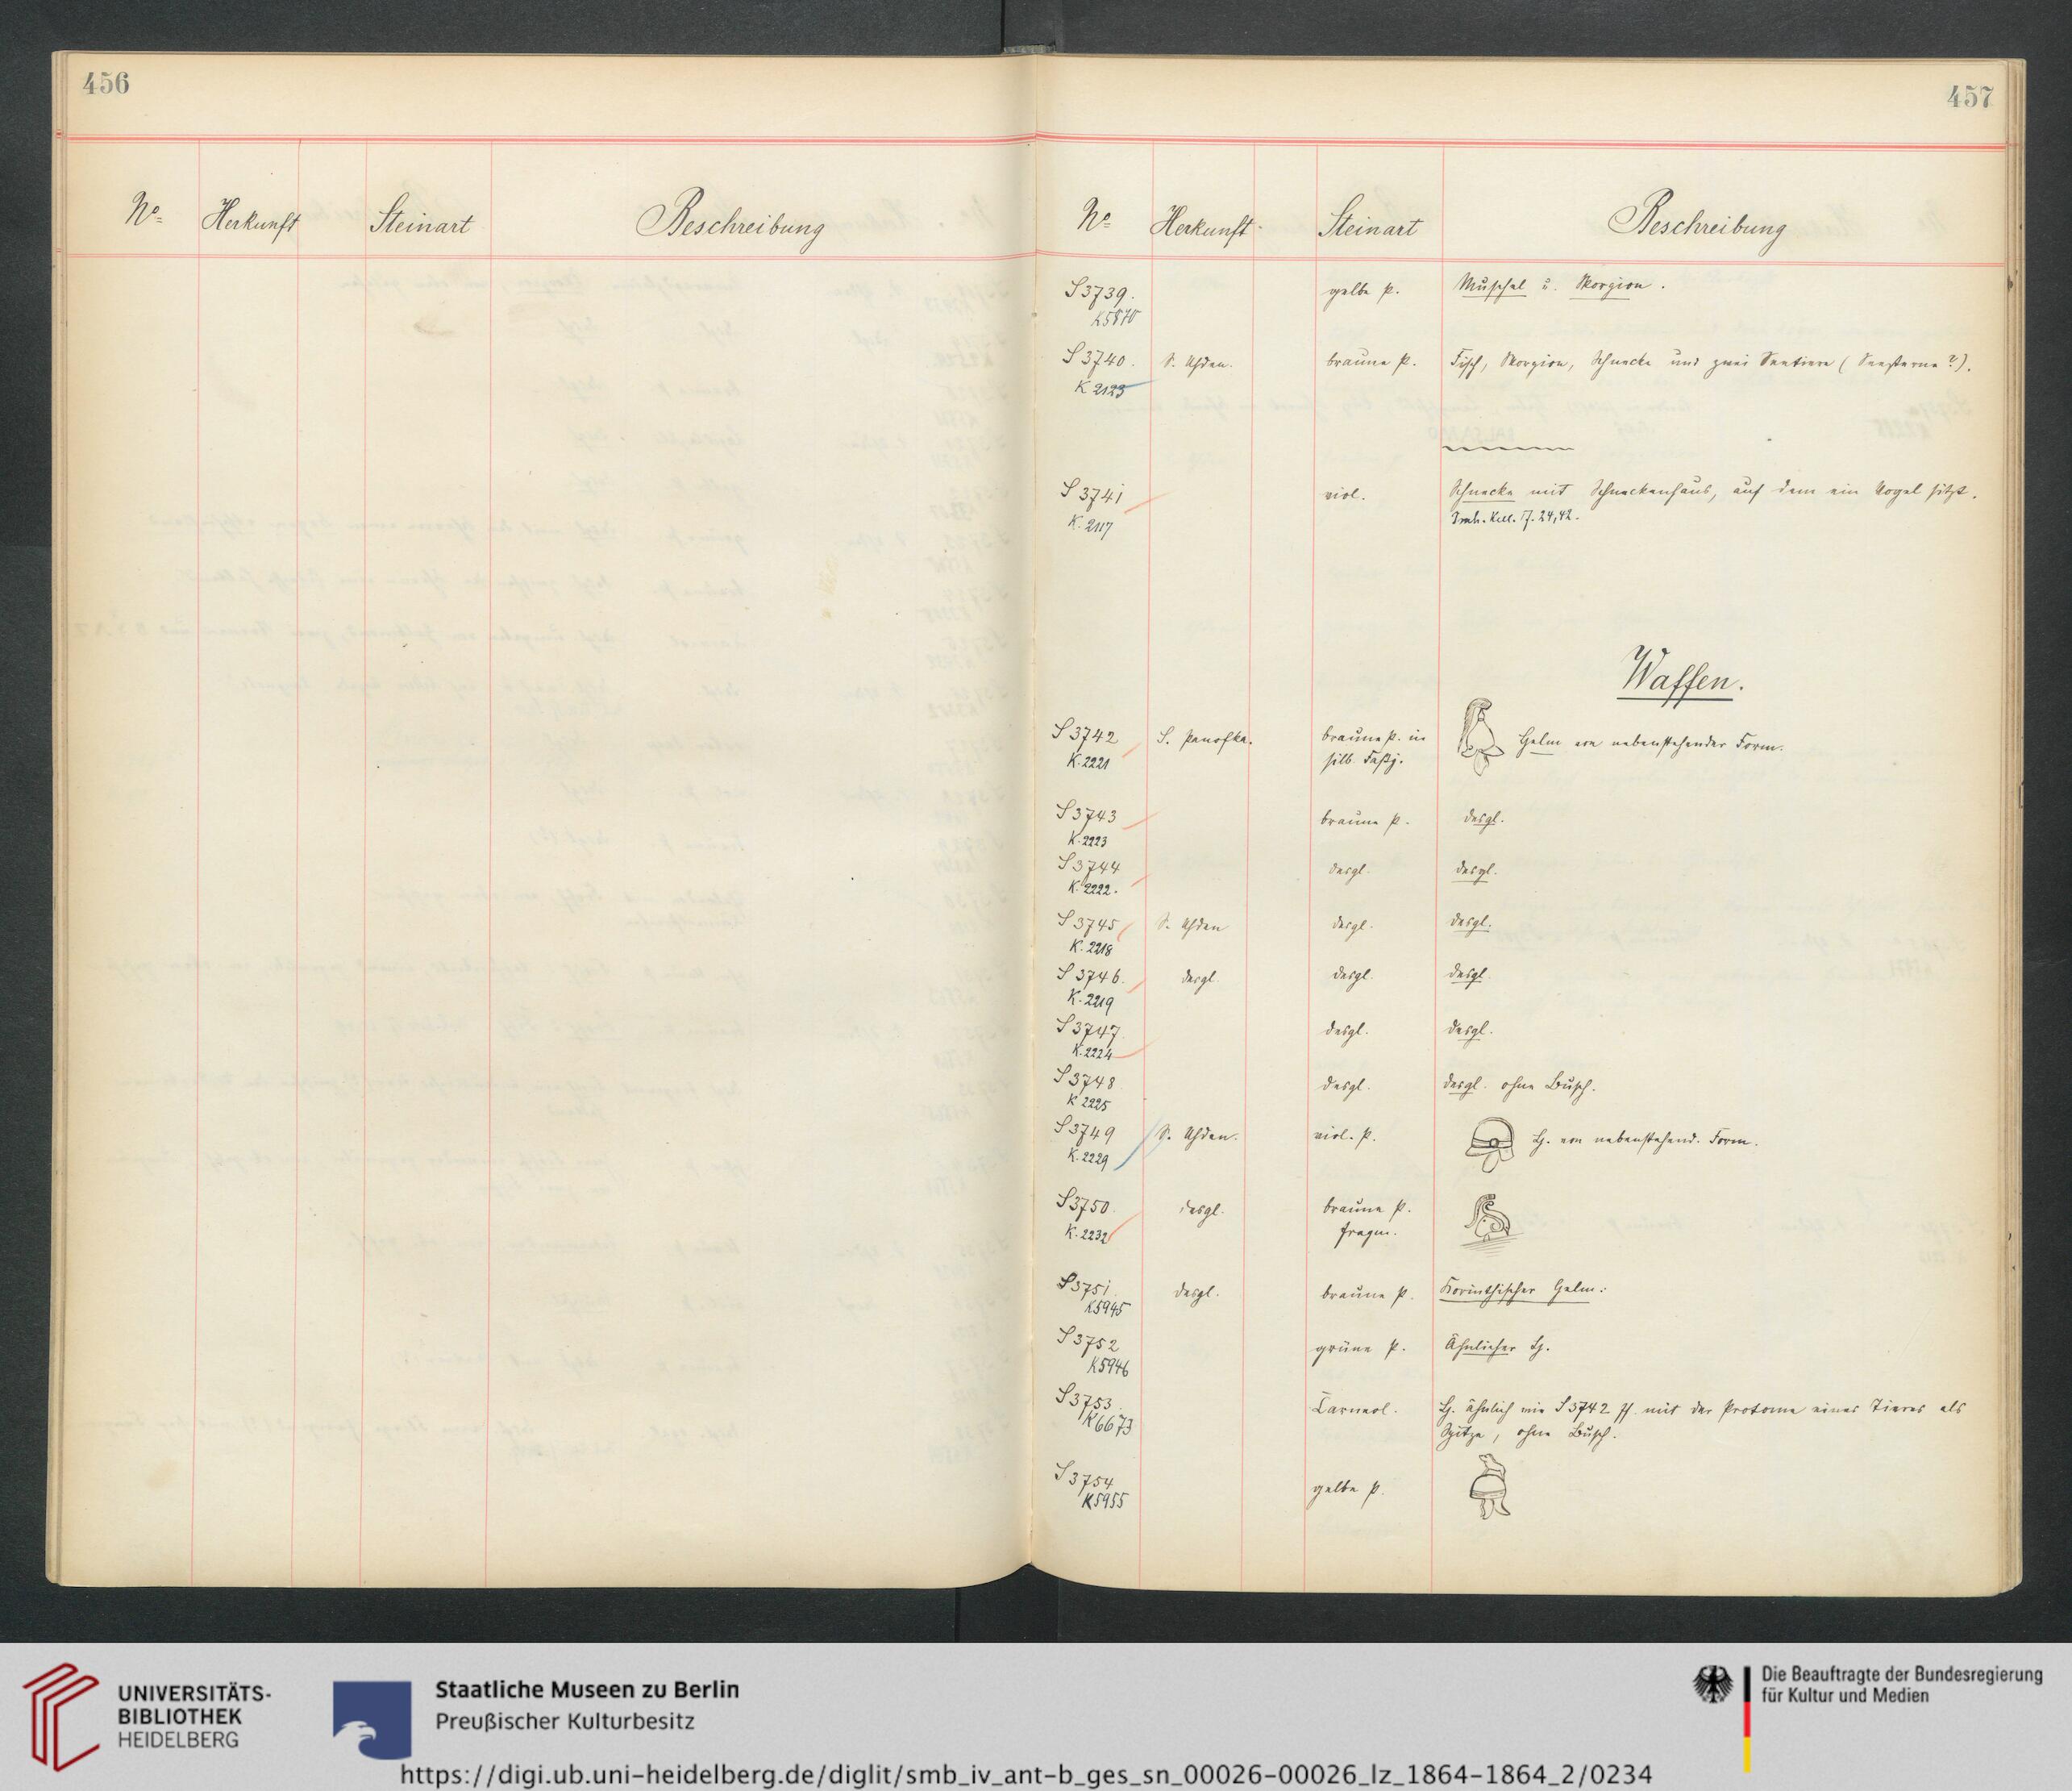 456
457
Nº Herkunft Steinart Beschreibung
Nº Herkunft Steinart Beschreibung
S 3739. gelbe P. Muschel u. Skorpion.
K5870
S 3740. S. Uhden. braune P. Fisch, Skorpion, Schnecke und zwei Seetiere (Seesterne?).
K 2123
S 3741 viol. Schnecke mit Schneckenhaus, auf dem ein Vogel sitzt.
K. 2117 Imh. Kell. T. 24,42.
Waffen.
S 3742 S. Panofka. braune P. in Helm von nebenstehender Form.
K. 2221 silb. Fassg.
S 3743 braune P. desgl.
K. 2223
S 3744 desgl. desgl.
K. 2222.
S 3745 S. Uhden desgl. desgl.
K. 2218
S 3746. desgl. desgl. desgl.
K. 2219
S 3747 desgl. desgl.
K. 2224
S 3748 desgl. desgl. ohne Busch.
K 2225
S 3749 S. Uhden. viol. P. H. von nebenstehend. Form.
K. 2229
S 3750. desgl. braune P.
K. 2232 fragm.
S 3751. desgl. braune P. Korinthischer Helm:
K5945
S 3752 grüne P. Ähnlicher H.
K5946
S 3753. Carneol. H. ähnlich wie S 3742 ff. mit der Protome eines Tieres als
K6673 Spitze, ohne Busch.
S 3754 gelbe P.
K5955
UNIVERSITÄTS-
BIBLIOTHEK
HEIDELBERG
Staatliche Museen zu Berlin
Preußischer Kulturbesitz
Die Beauftragte der Bundesregierung
für Kultur und Medien
https://digi.ub.uni-heidelberg.de/diglit/smb_iv_ant-b_ges_sn_00026-00026_lz_1864-1864_2/0234